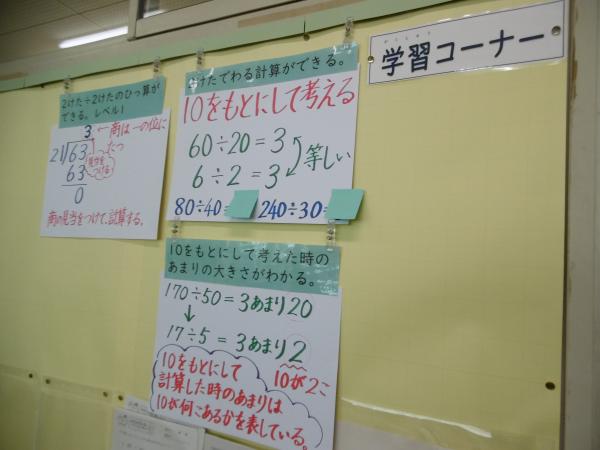 学習コーナー
がくしゅう
2けた÷2けたのひっ算が
できる。レベル1
3 ←商は一の位に
たつ
21)63
63
0
見当を
つける
商の見当をつけて、試算する。
2けたでわる計算ができる。
10をもとにして考える
60÷20=3
6÷2=3
等しい
80÷40=
240÷30=
10をもとにして考えた時の
あまりの大きさがわかる。
170÷50=3あまり20
↓
17÷5=3あまり2
10が2こ
10をもとにして
計算した時のあまりは
10が何こあるかを表している。